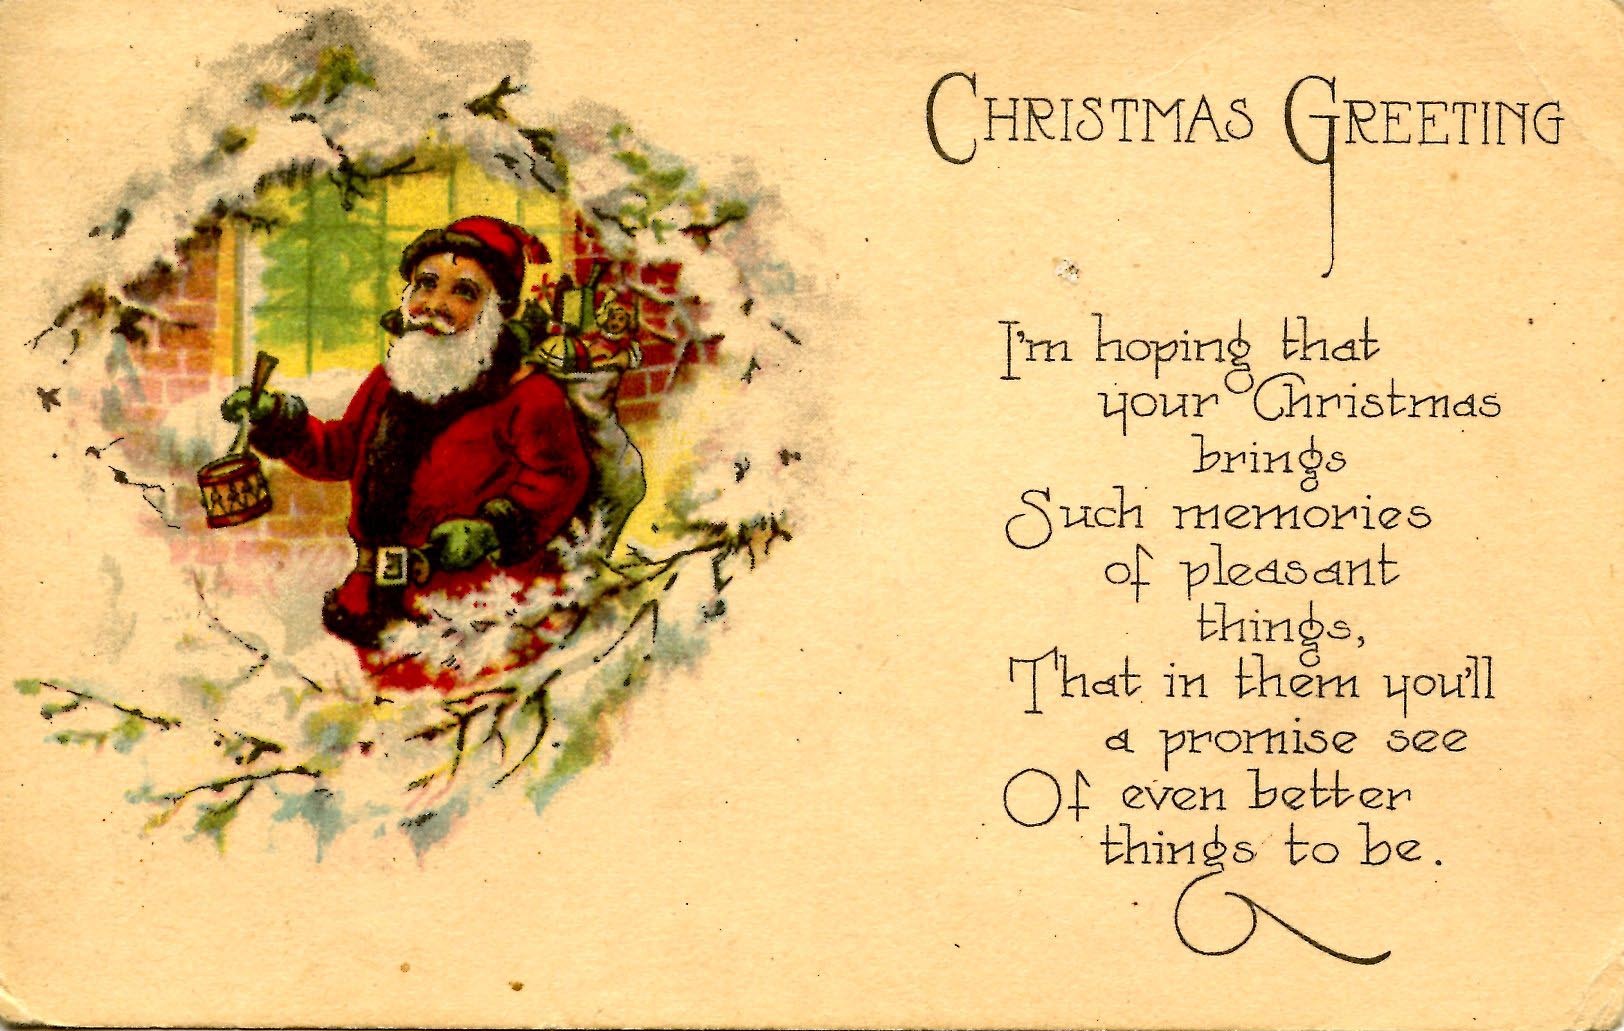 CHRISTMAS GREETING
I'm hoping that
your Christmas
brings
Such memories
of pleasant
things,
That in them you'll
a promise see
Of even better
things to be.